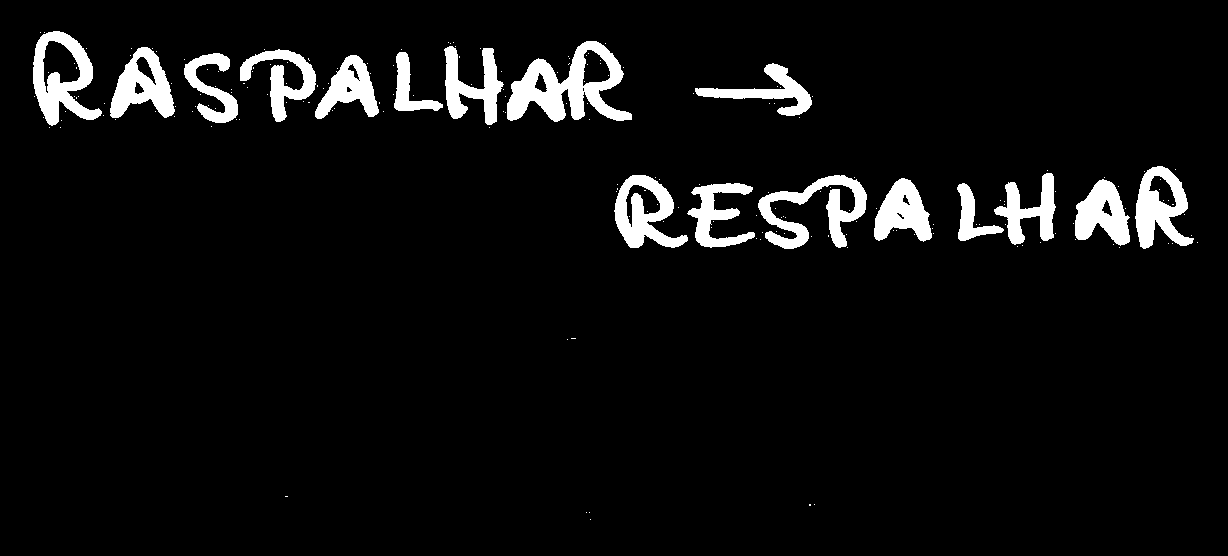 RASPALHAR →
RESPALHAR